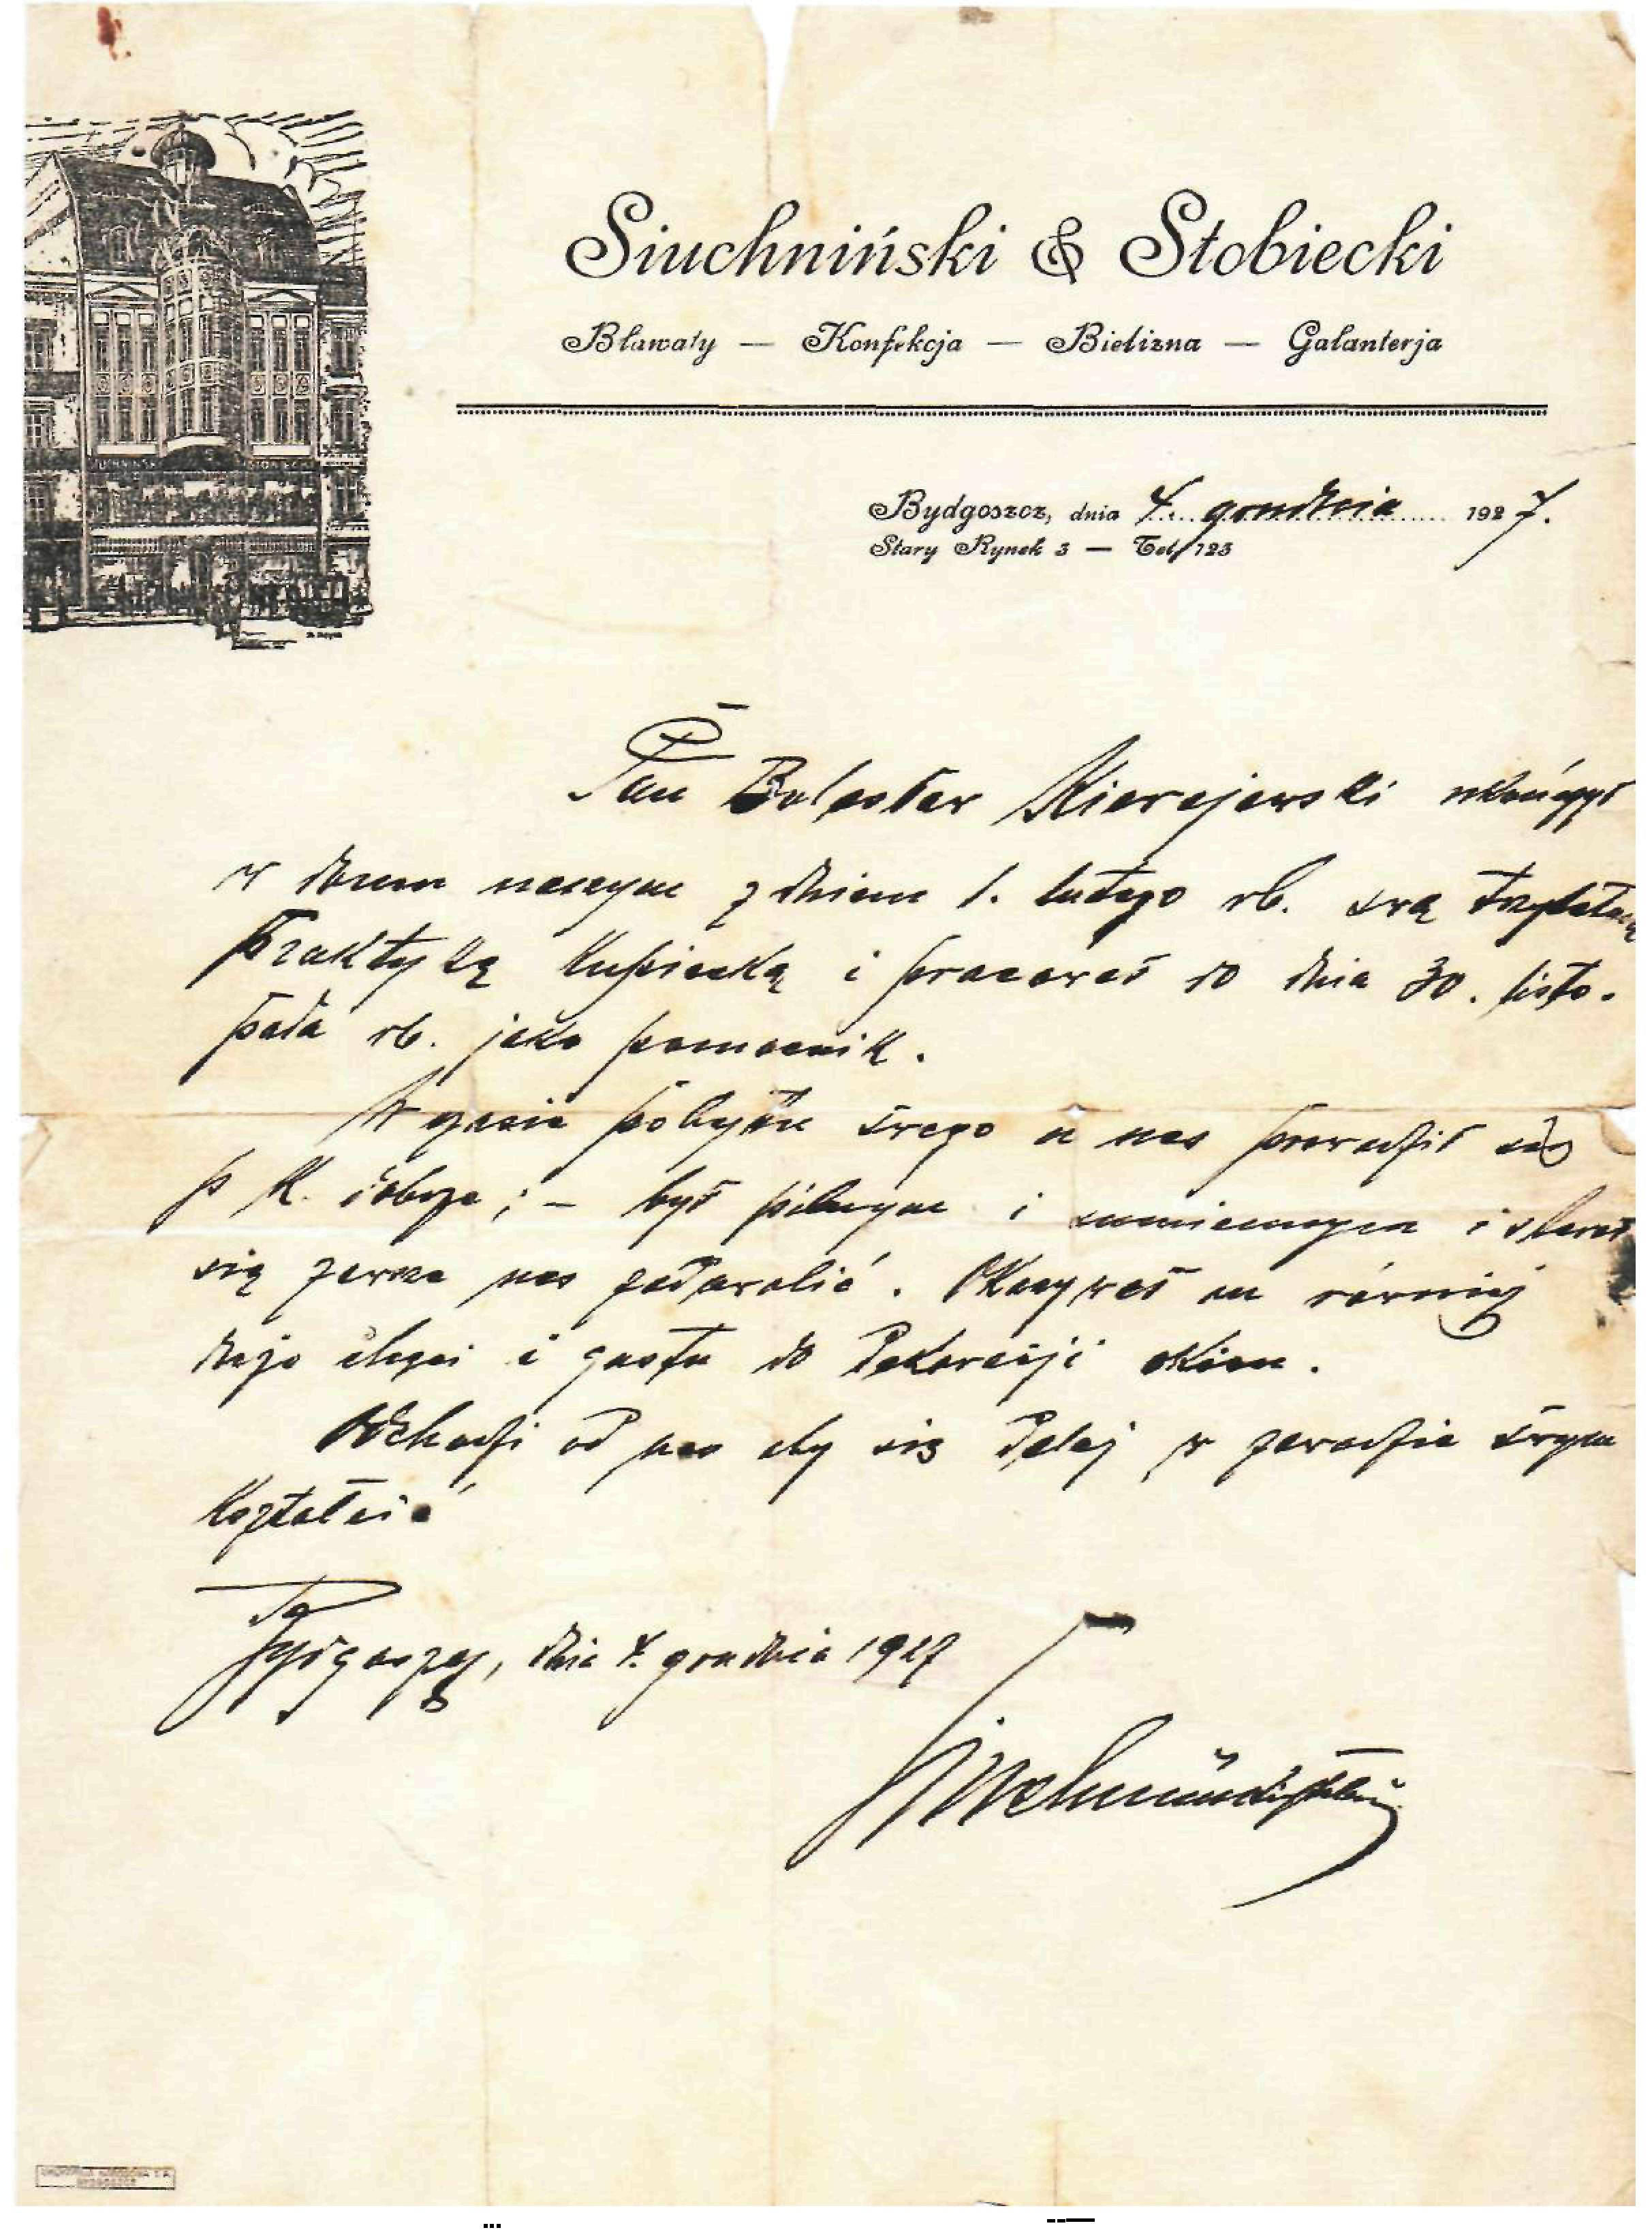 Siuchniński & Stobiecki
Bławaty — Konfekcja — Bielizna — Galanterja
Bydgoszcz, dnia 4. grudnia 1927.
Stary Rynek 3 — Tel. 123
Pan Bolesław Kierejewski ukończył
w domu naszym z dniem 1. lutego rb. swą trzyletnią
praktykę kupiecką i pracował do dnia 30. listo-
pada rb. jako pomocnik.
W czasie pobytu swego u nas prowadził się
p K. dobrze; – był pilnym i sumiennym i starał
się zawsze nas zadowolić. Okazywał on również
dużo chęci i gustu do dekoracji okien.
Odchodzi od nas aby się dalej w zawodzie swym
kształcić
Bydgoszcz, dnia 4. grudnia 1927